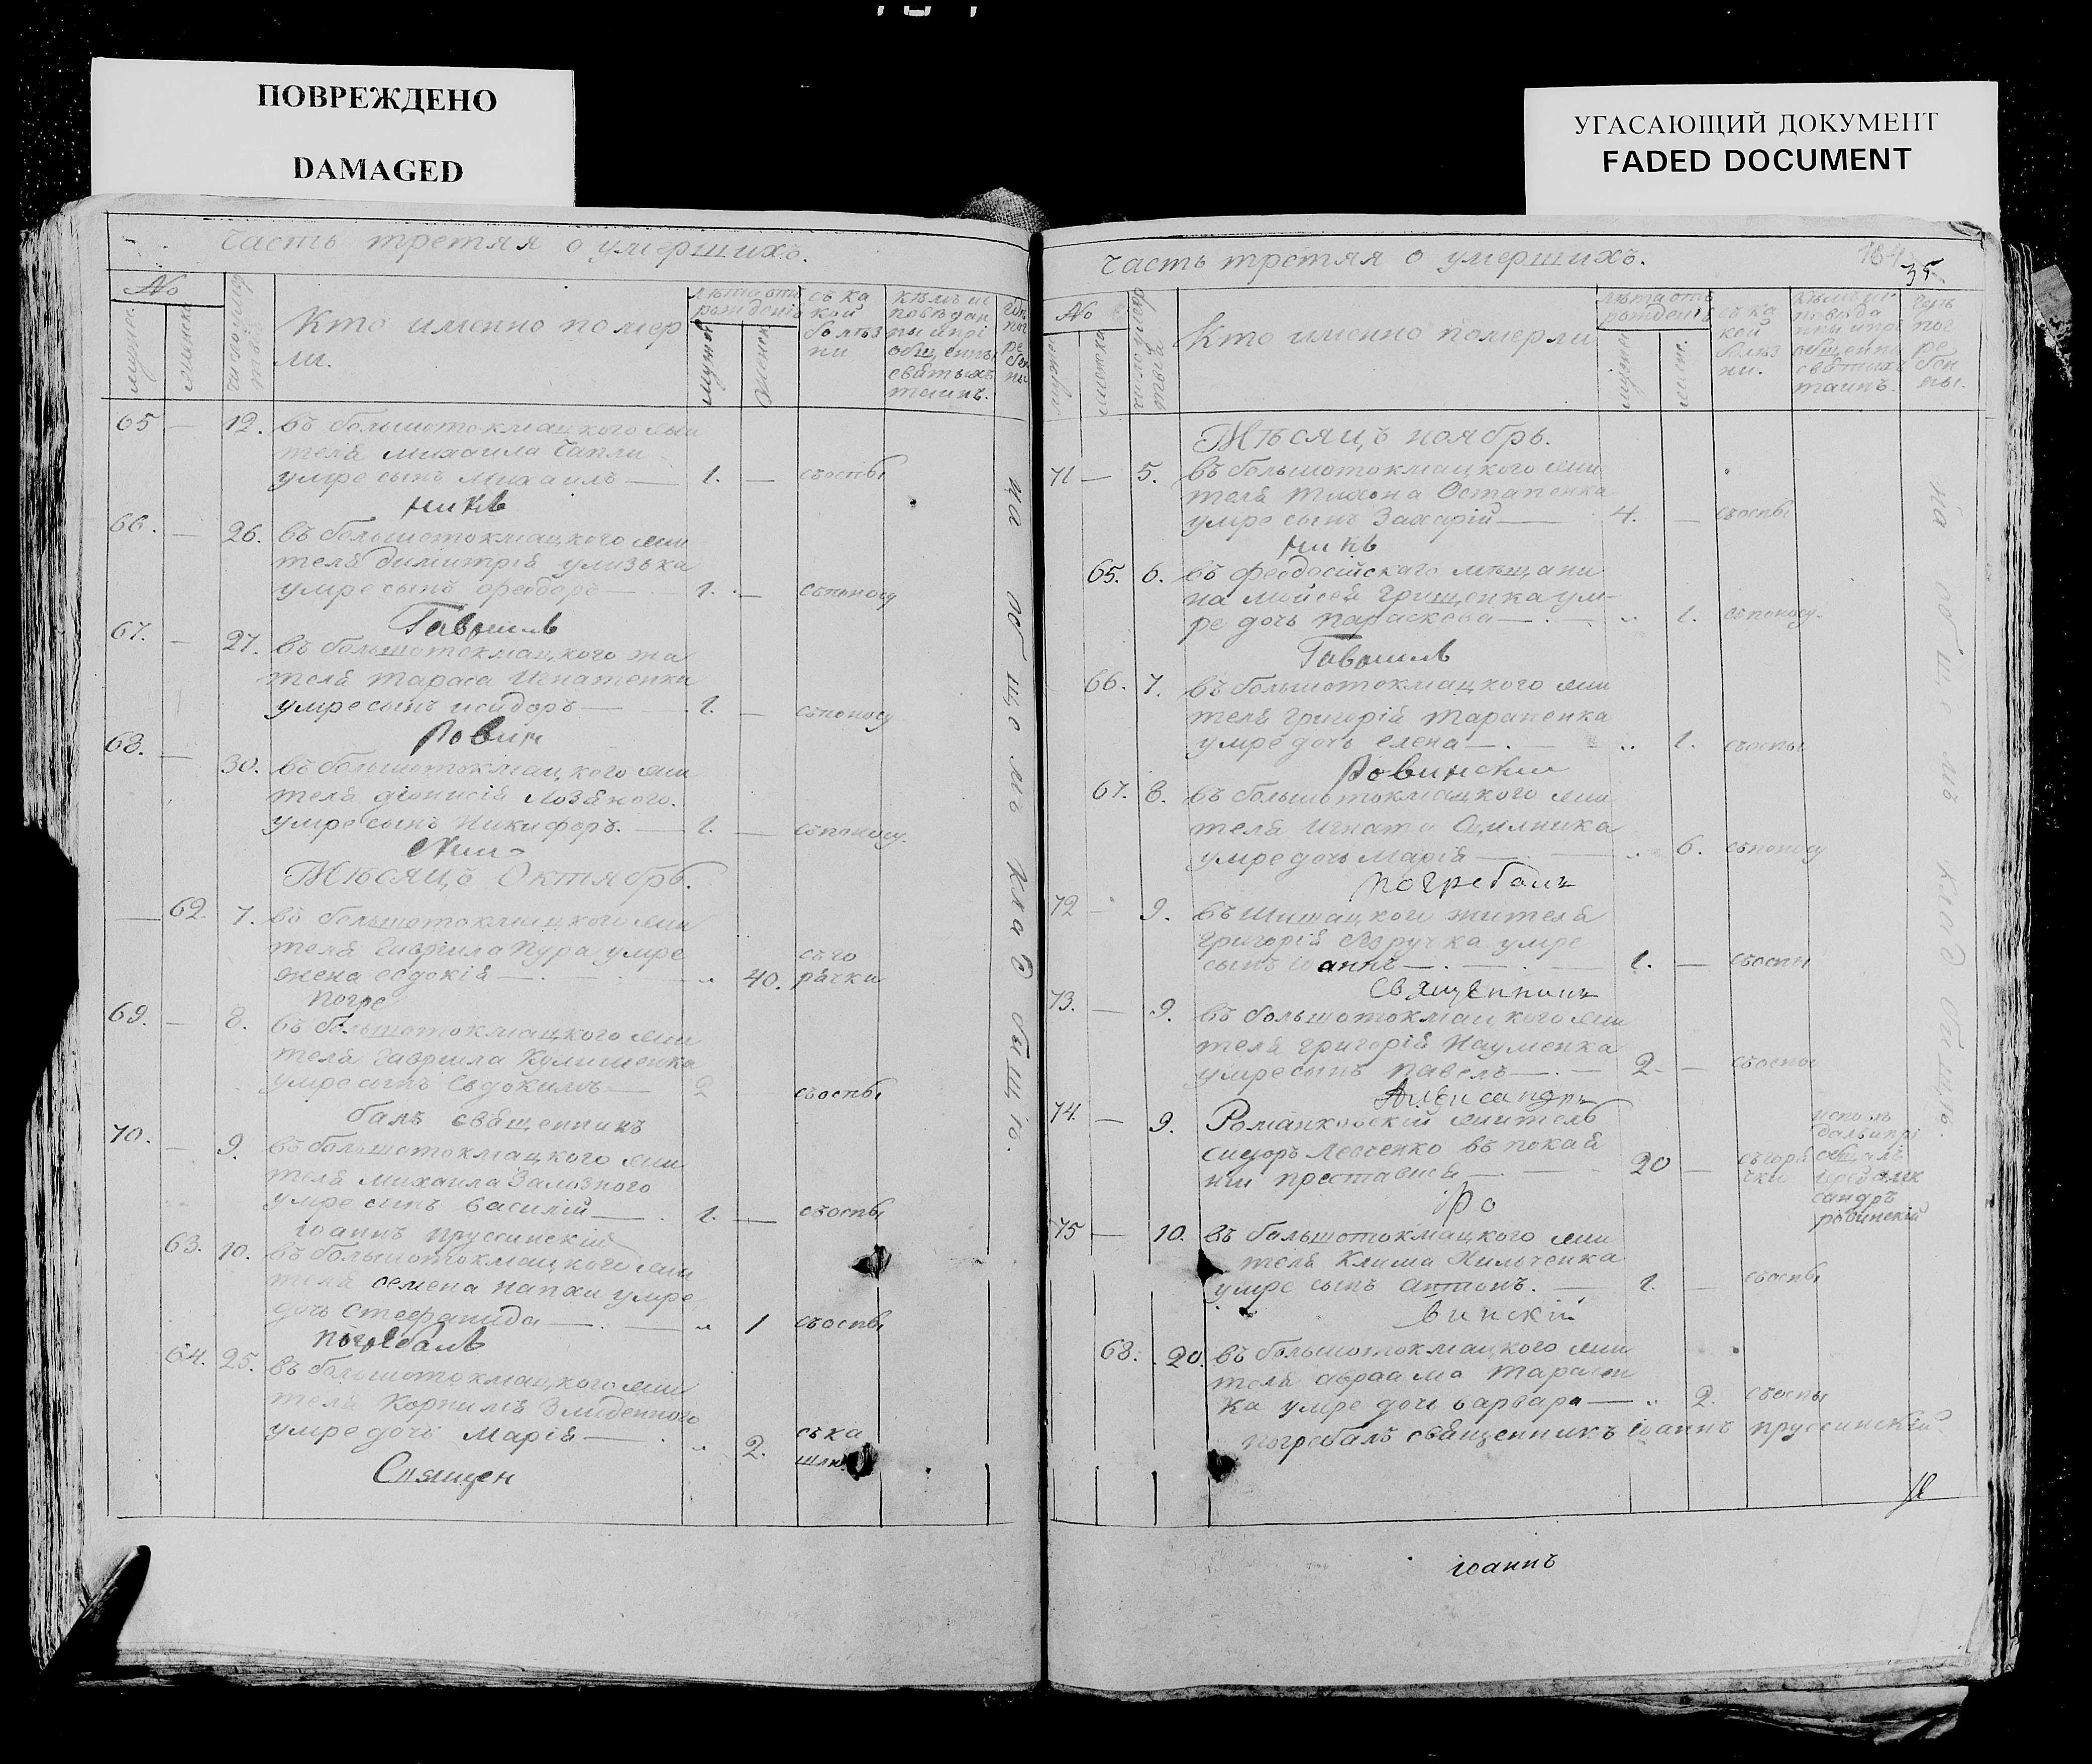 ПОВРЕЖДЕНО
DAMAGED
УГАСАЮЩИЙ ДОКУМЕНТ
FADED DOCUMENT
Часть третяя о умершихъ.
№
Кто именно помер
ли.
лѣта отъ
рожденія
съ ка
кой
болѣз
ни
кѣмъ ис
повѣдан
ны и прі
общены
святыхъ
таинъ.
гдѣ
пог
ре
бен
ны
65 — 12. въ большотокмацкого жи
теля михаила Чапли
умре сынъ михаилъ — 1. — съоспы
никъ
66. — 26. въ большотокмацкого жи
теля димитрія улизька
умре сынъ ѳеодоръ — 1. — съпоносу
Гавриилъ
67. — 27. въ большотокмацкого жи
теля тараса Игнатенка
умре сынъ исидоръ — 1. — съпоносу
Ровин
68. — 30. въ большотокмацкого жи
теля діонисія лозяного.
умре сынъ Никифоръ. — 1. — съпоносу.
Мѣсяцъ Октябрь.
— 62. 7. въ большотокмацкого жи
теля гавріила Пура умре
жена евдокія — 40. съго
рячки
погре
69. — 8. въ большотокмацкого жи
теля гавріила Кулишенка
умре сынъ Евдокимъ — 2 съоспы
балъ священникъ
70. — 9. въ большотокмацкого жи
теля михаила Зализного
умре сынъ василій — 1. — съоспы
іоаннъ пруссинскій
63. 10. въ большотокмацкого жи
теля семена напхи умре
дочь стефанида — „ 1 съоспы
погребалъ
64. 25. въ большотокмацкого жи
теля Корнилія Злиденного
умре дочь Марія — „ 2. съка
шлю
Священ
на общемъ кладбищѣ.
Часть третяя о умершихъ.
184
35
№
Кто именно померли
лѣта отъ
рожденія
съ ка
кой
болѣз
ни.
кѣмъ ис
повѣда
нны и прі
общенны
святыхъ
таинъ.
гдѣ
пог
ре
бен
ны.
Мѣсяцъ ноябрь.
71 — 5. въ большотокмацкого жи
теля тихона Остапенка
умре сынъ Захарій — 4. — съоспы
никъ
65. 6. въ феодосійскаго мѣщани
на моисея Грищенка ум
ре дочь параскева — „ 1. съпоносу.
Гавриилъ
66. 7. въ большотокмацкого жи
теля григорія тараненка
умре дочь елена — „ 1. съоспы
Ровинскій
67. 8. въ большотокмацкого жи
теля игната
умре дочь марія — „ 6. съпоносу
погребалъ
72 — 9. въ шишацкого жителя
григорія умре
сынъ іоаннъ — 1. — съоспы
Священникъ
73. — 9. въ большотокмацкого жи
теля григорія Науменка
умре сынъ павелъ — 2. — съоспы
Александръ
74. — 9. Романковскій житель
сидоръ левченко въ покая
ніи преставися — 20 — съгоря
чки
исповѣ
далъ и прі
общалъ
іерей алек
сандръ
ровинскій
Ро
75 — 10. въ большотокмацкого жи
теля Клима Хильченка
умре сынъ антонъ. — 1. — съоспы
винскій
68. 20. въ большотокмацкого жи
теля авраама тарасен
ка умре дочь варвара — „ 2. съоспы
погребалъ священникъ іоаннъ пруссинскій
на общемъ кладбищѣ.
іоаннъ